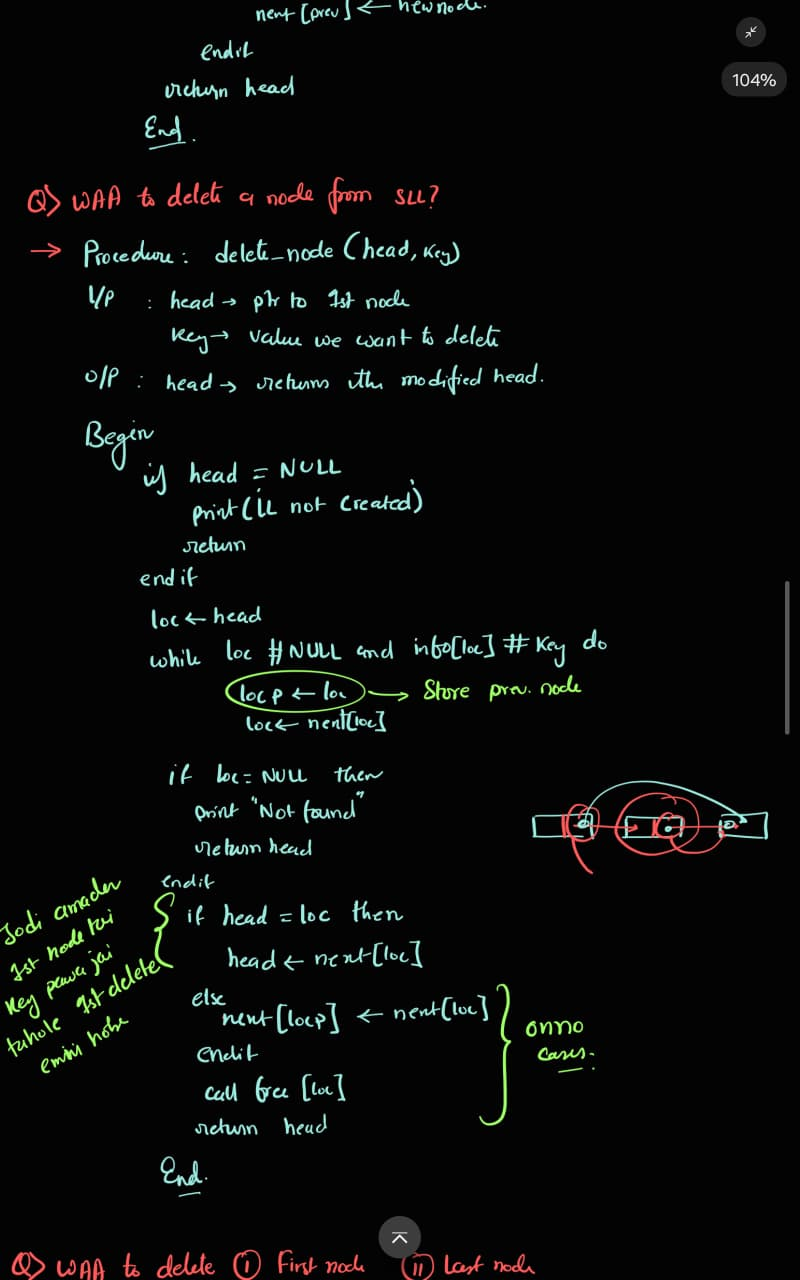 next [prev] ← newnode.
endif
return head
End.
104%
Q> WAA to delete a node from SLL?
→ Procedure: delete_node (head, key)
I/P : head → ptr to 1st node
key → value we want to delete
O/P : head → returns the modified head.
Begin
if head = NULL
print (LL not created)
return
endif
loc ← head
while loc ≠ NULL and info[loc] ≠ key do
locp ← loc → Store prev. node
loc ← next[loc]
if loc = NULL then
print "Not found"
return head
endif
if head = loc then
head ← next[loc]
Jodi amader
1st node tei
key pawa jai
tahole 1st delete
emni hobe
else
next [locp] ← next[loc]
endif
call free [loc]
return head
onno
cases.
End.
Q> WAA to delete (i) First node (ii) Last node